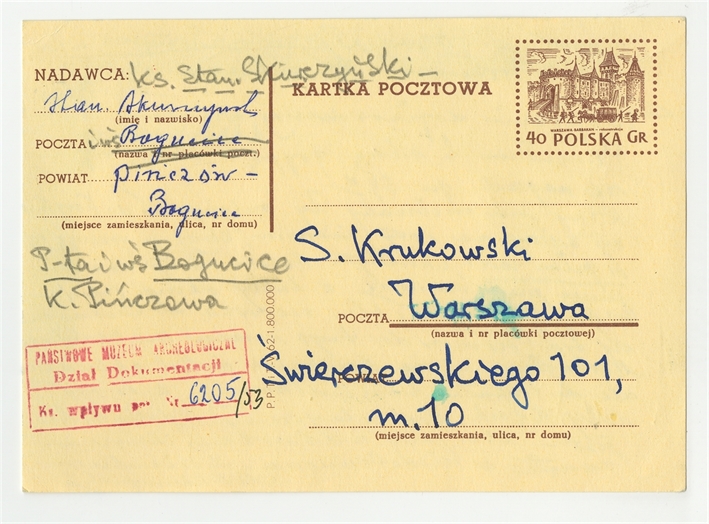 NADAWCA: ks. Stan. Skurczyński
Stan. Skurczyński
(imię i nazwisko)
POCZTA i wś Bogucice
(nazwa i nr placówki poczt.)
POWIAT Pińczów -
Bogucice
(miejsce zamieszkania, ulica, nr domu)
P-ta i wś Bogucice
k. Pińczowa
PAŃSTWOWE MUZEUM ARCHEOLOGICZNE
Dział Dokumentacji
Ks. wpływu poz. Nr 6205/53
62-1.800.000
KARTKA POCZTOWA
WARSZAWA BARBAKAN
40 POLSKA GR
S. Krukowski
POCZTA Warszawa
(nazwa i nr placówki pocztowej)
POWIAT Świerczewskiego 101,
m. 10
(miejsce zamieszkania, ulica, nr domu)